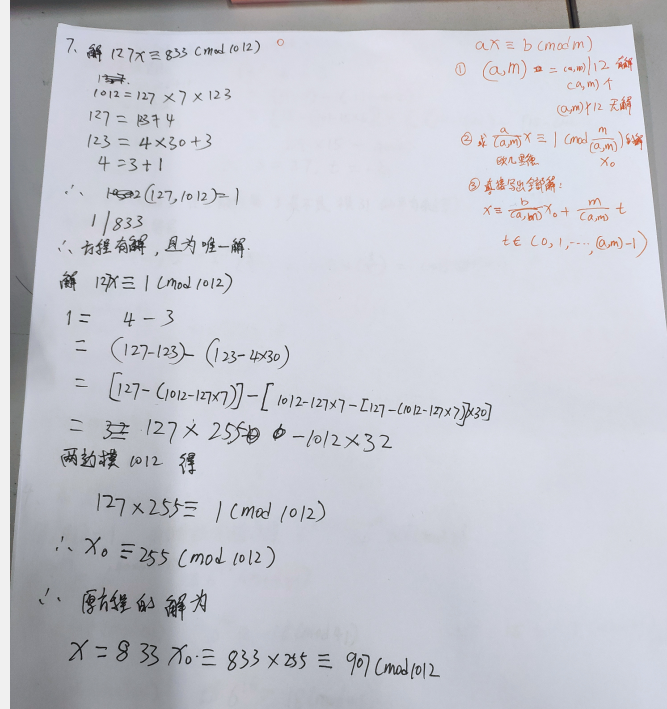 7. 解 127x≡833 (mod 1012)
1012=127×7×123
127=123+4
123=4×30+3
4=3+1
∴ (127,1012)=1
1/833
∴ 方程有解,且为唯一解.
解 127x≡1(mod 1012)
1= 4-3
= (127-123)-(123-4×30)
= [127-(1012-127×7)]-[1012-127×7-[127-(1012-127×7)]×30]
= 127×255-1012×32
两边模1012 得
127×255≡1(mod 1012)
∴ x₀≡255(mod 1012)
∴ 原方程的解为
x=833x₀≡833×255≡907(mod1012
ax≡b(mod m)
① (a,m) = (a,m)|12 有解
(a,m)个
(a,m)∤12 无解
② 求 a/(a,m) x≡1(mod m/(a,m))的解
x₀
③ 直接写出全部解:
x≡ b/(a,m) x₀ + m/(a,m) t
t∈(0,1,…,(a,m)-1)